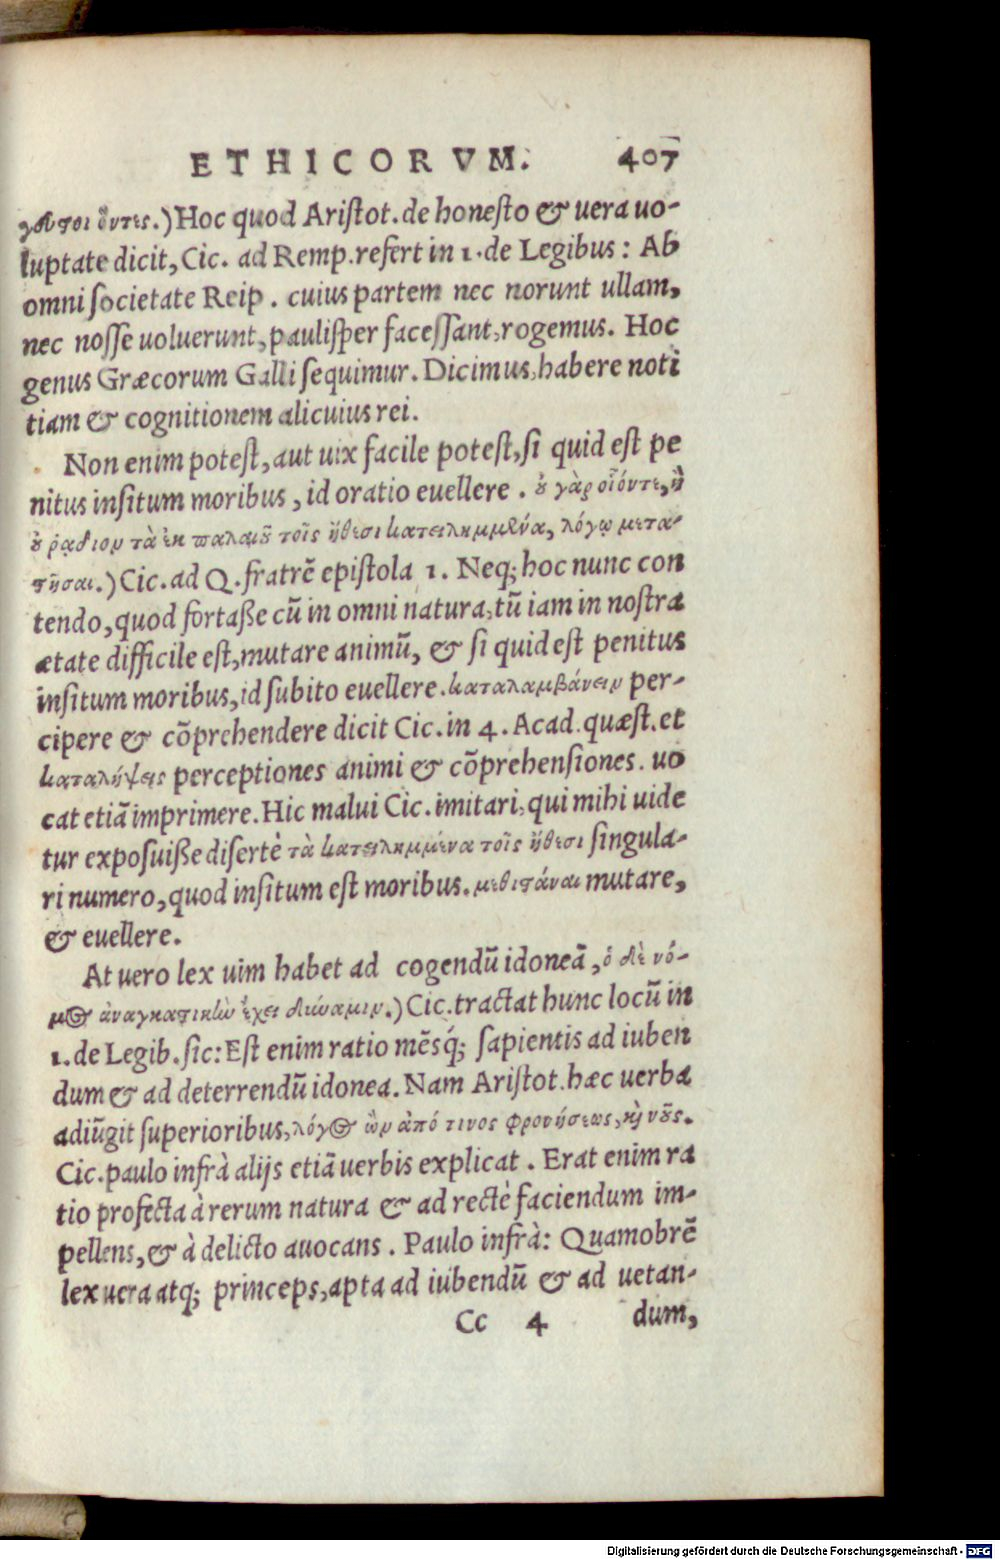 ETHICORVM. 407
γευστοι ὄντες.) Hoc quod Aristot. de honesto & uera uo-
luptate dicit, Cic. ad Remp. refert in 1. de Legibus: Ab
omni societate Reip. cuius partem nec norunt ullam,
nec nosse uoluerunt, paulisper facessant, rogemus. Hoc
genus Græcorum Galli sequimur. Dicimus, habere noti
tiam & cognitionem alicuius rei.
Non enim potest, aut uix facile potest, si quid est pe
nitus insitum moribus, id oratio euellere. οὐ γὰρ οἷόντε, ἢ
οὐ ῥᾴδιον τὰ ἐκ παλαιοῦ τοῖς ἤθεσι κατειλημμένα, λόγῳ μετα-
στῆσαι.) Cic. ad Q. fratrē epistola 1. Neq; hoc nunc con
tendo, quod fortaße cū in omni natura, tū iam in nostra
ætate difficile est, mutare animū, & si quid est penitus
insitum moribus, id subito euellere. καταλαμβάνειν per-
cipere & cōprehendere dicit Cic. in 4. Acad. quæst. et
καταλήψεις perceptiones animi & cōprehensiones. uo
cat etiā imprimere. Hic malui Cic. imitari, qui mihi uide
tur exposuiße disertè τὰ κατειλημμένα τοῖς ἤθεσι singula-
ri numero, quod insitum est moribus. μεθιστάναι mutare,
& euellere.
At uero lex uim habet ad cogendū idoneā, ὁ δὲ νό-
μος ἀναγκαστικὴν ἔχει δύναμιν.) Cic. tractat hunc locū in
1. de Legib. sic: Est enim ratio mēsq́; sapientis ad iuben
dum & ad deterrendū idonea. Nam Aristot. hæc uerba
adiūgit superioribus, λόγος ὢν ἀπό τινος φρονήσεως, καὶ νοῦς.
Cic. paulo infrà alijs etiā uerbis explicat. Erat enim ra
tio profecta à rerum natura & ad rectè faciendum im-
pellens, & à delicto auocans. Paulo infrà: Quamobrē
lex uera atq; princeps, apta ad iubendū & ad uetan-
Cc 4 dum,
Digitalisierung gefördert durch die Deutsche Forschungsgemeinschaft - DFG